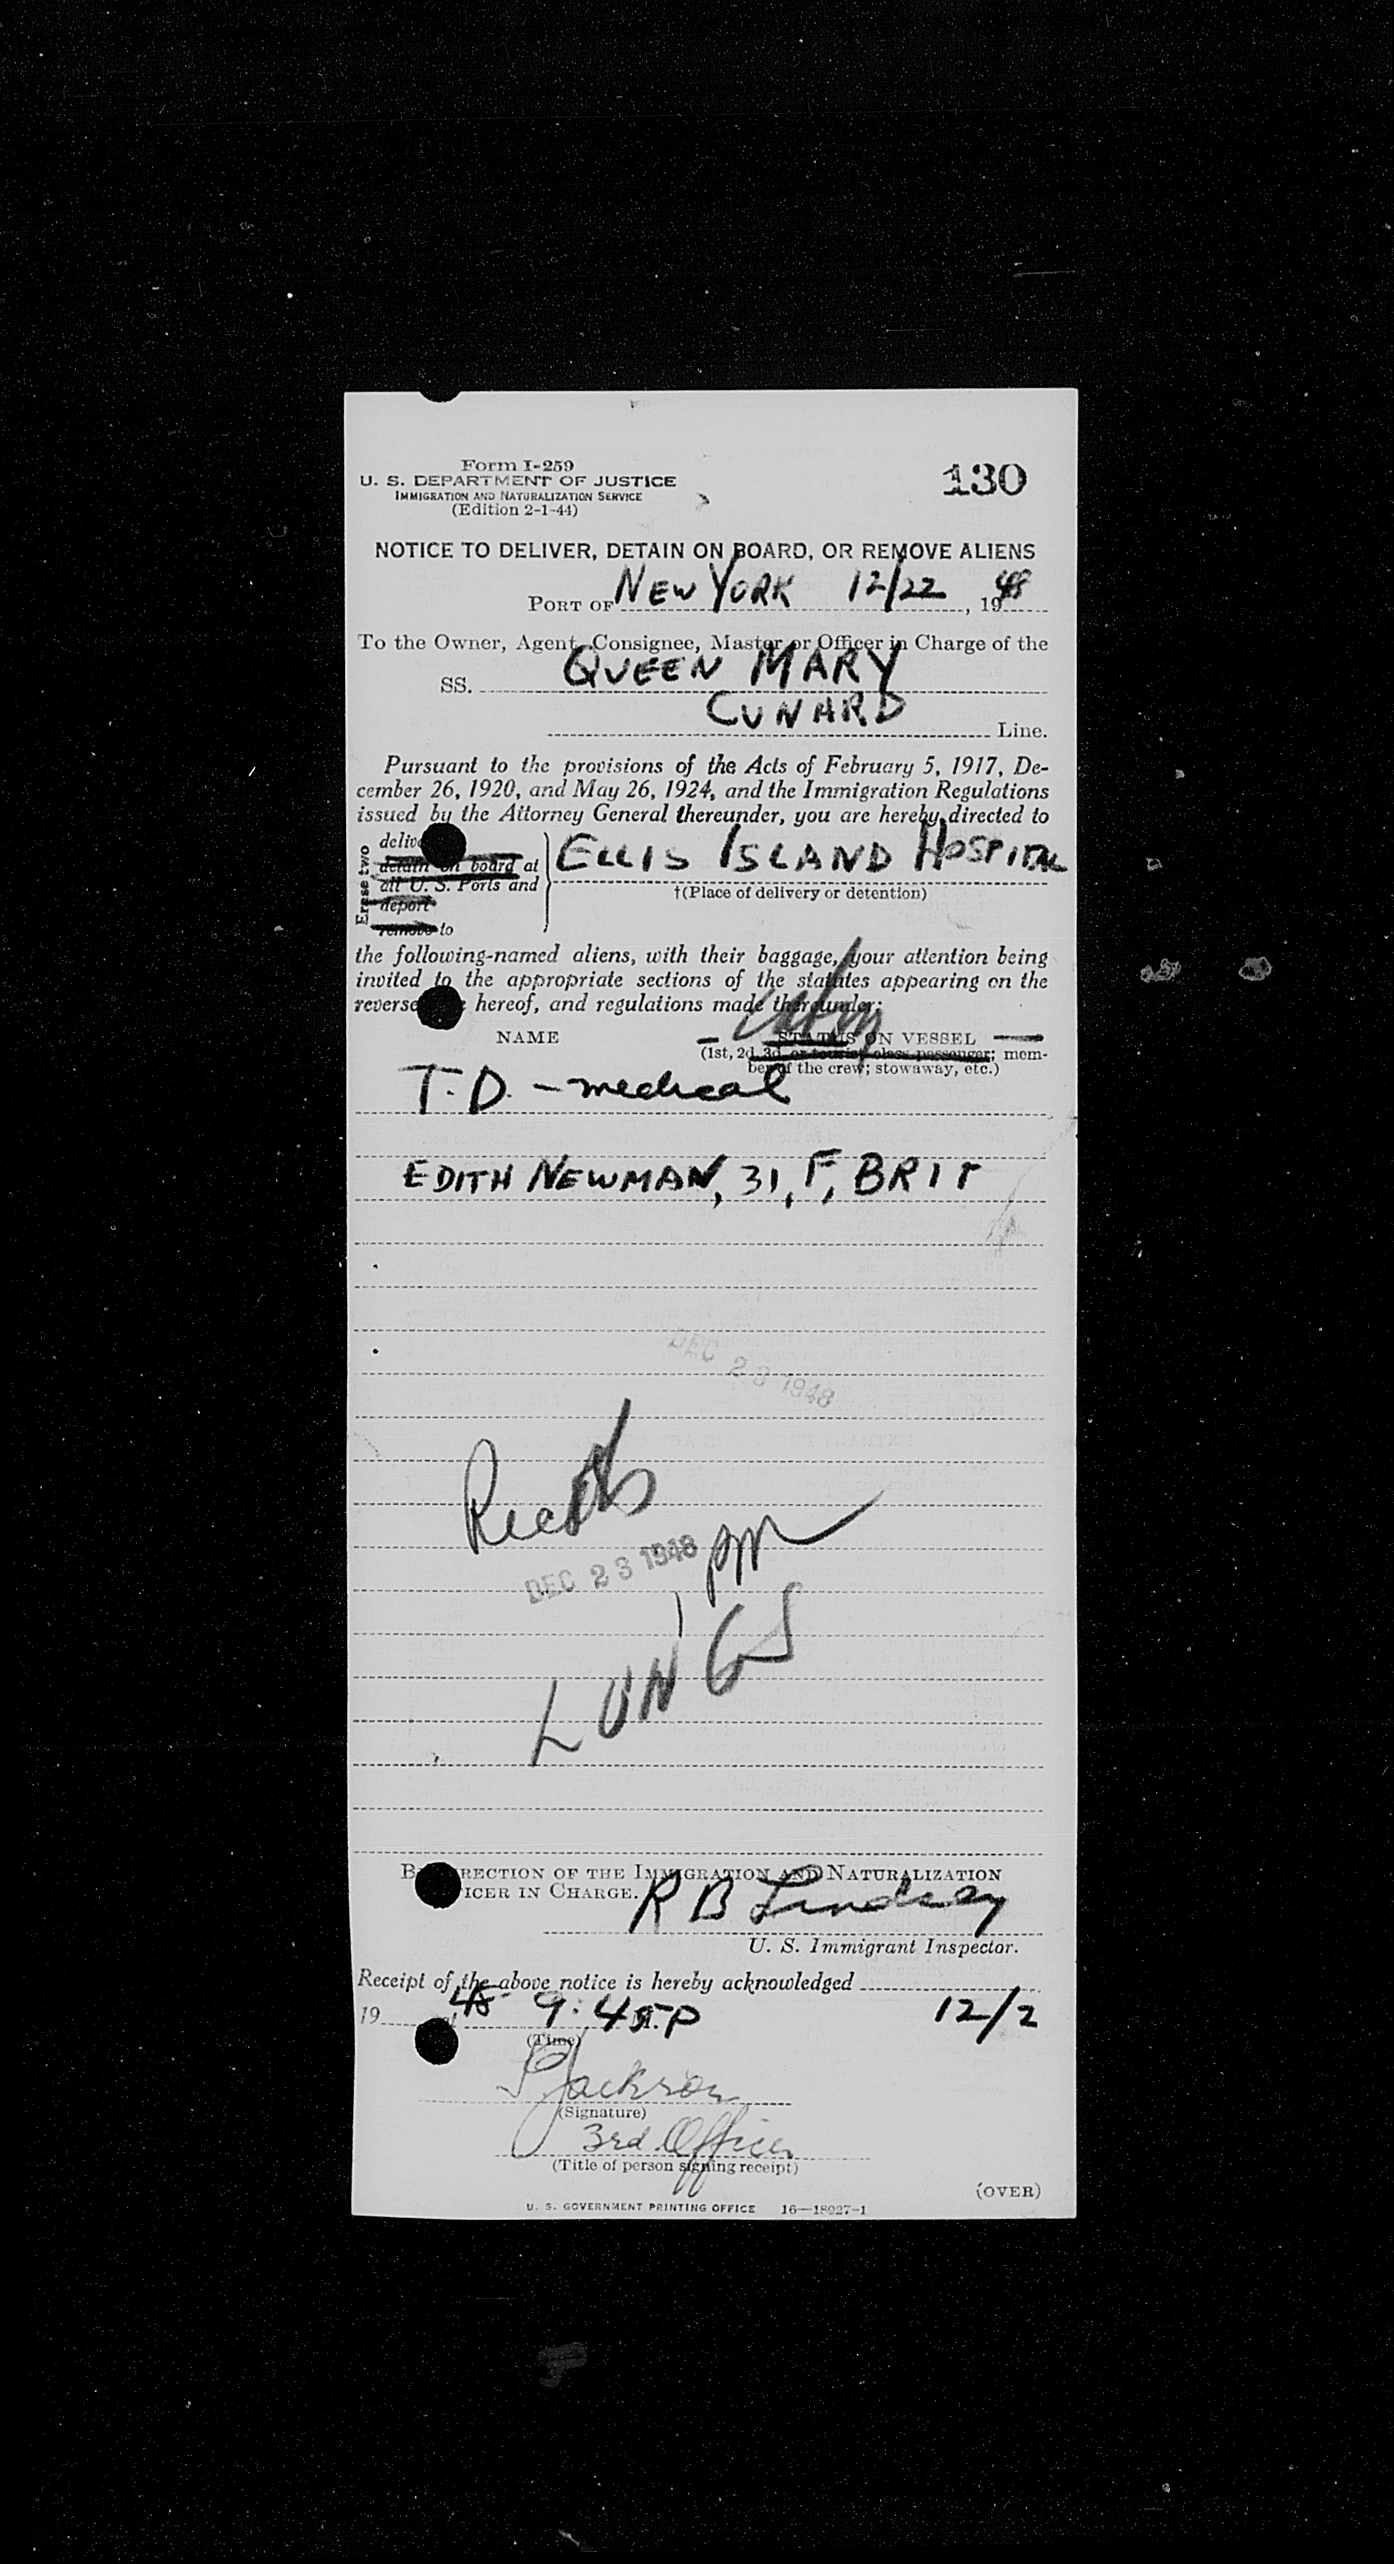 Form I-259
130
U. S. DEPARTMENT OF JUSTICE
IMMIGRATION AND NATURALIZATION SERVICE
(Edition 2-1-44)
NOTICE TO DELIVER, DETAIN ON BOARD, OR REMOVE ALIENS
PORT OF NEW YORK 12/22, 1948
To the Owner, Agent, Consignee, Master or Officer in Charge of the
SS. QUEEN MARY
CUNARD Line.
Pursuant to the provisions of the Acts of February 5, 1917, De-
cember 26, 1920, and May 26, 1924, and the Immigration Regulations
issued by the Attorney General thereunder, you are hereby directed to
Erase two
deliv
detain on board at
all U. S. Ports and
deport
remove to
ELLIS ISLAND HOSPITAL
†(Place of delivery or detention)
the following-named aliens, with their baggage, your attention being
invited to the appropriate sections of the statutes appearing on the
reverse hereof, and regulations made thereunder:
NAME STATUS ON VESSEL
(1st, 2d, 3d, or tourist class passenger; mem-
ber of the crew; stowaway, etc.)
T. D. - medical
EDITH NEWMAN, 31, F, BRIT
DEC 23 1948
DEC 23 1948 pm
LUNGS
B RECTION OF THE IMMIGRATION AND NATURALIZATION
ICER IN CHARGE.
R B Lindsay
U. S. Immigrant Inspector.
Receipt of the above notice is hereby acknowledged
12/2
19 48 9:45 P
(Time)
Jackson
(Signature)
3rd Officer
(Title of person signing receipt)
(OVER)
U. S. GOVERNMENT PRINTING OFFICE 16—18027-1